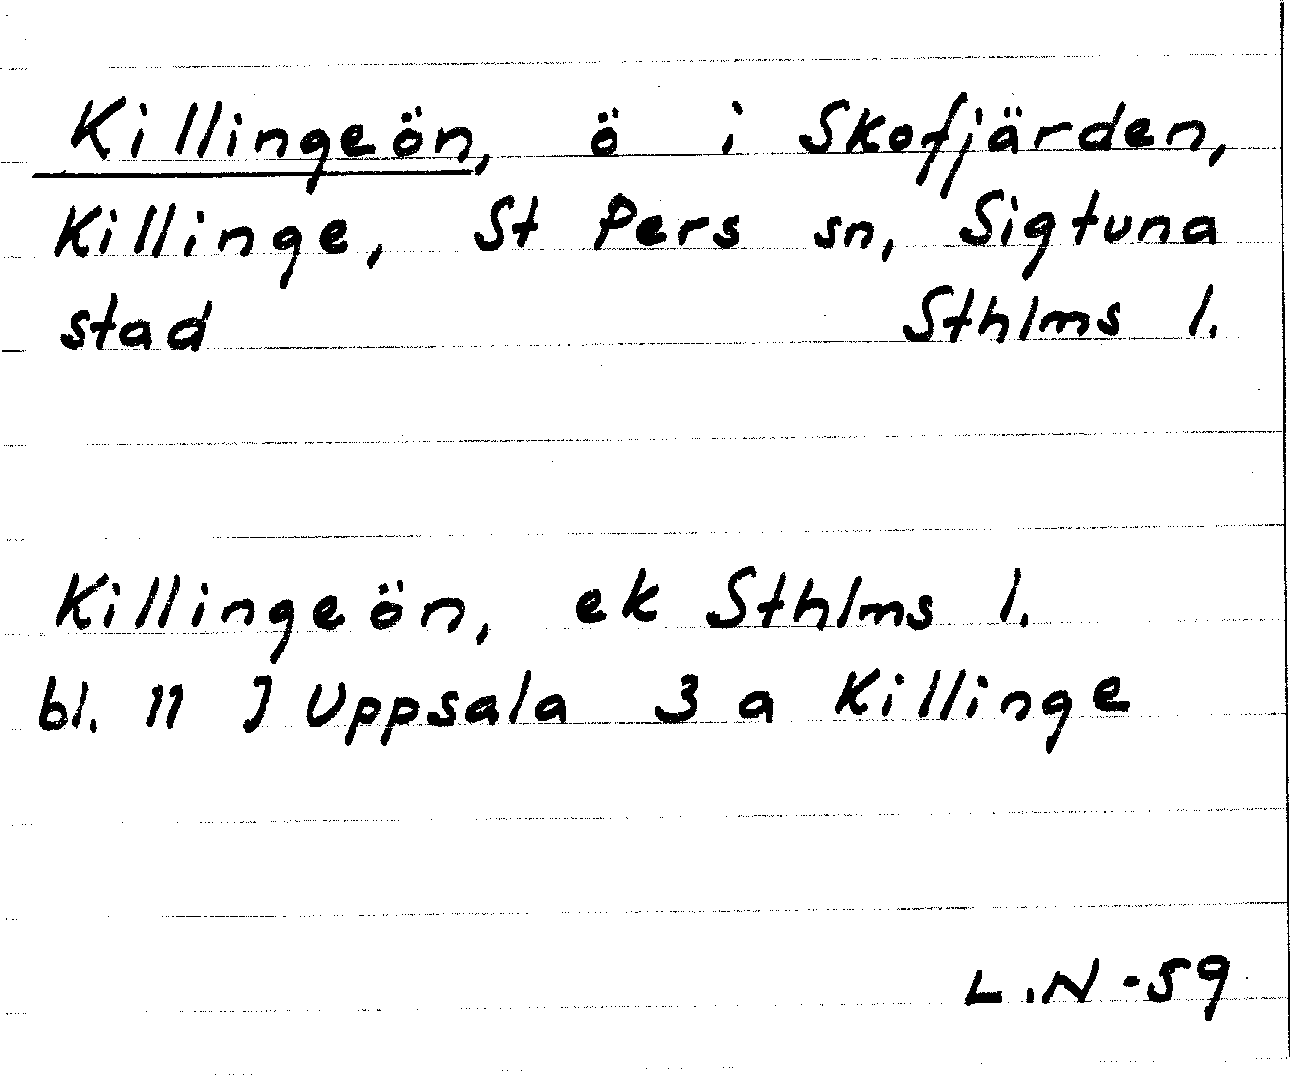 Killingeön, ö i Skofjärden,
Killinge, St Pers sn, Sigtuna
stad Sthlms l.
Killingeön, ek Sthlms l.
bl. 11 J Uppsala 3 a Killinge
L.N -59